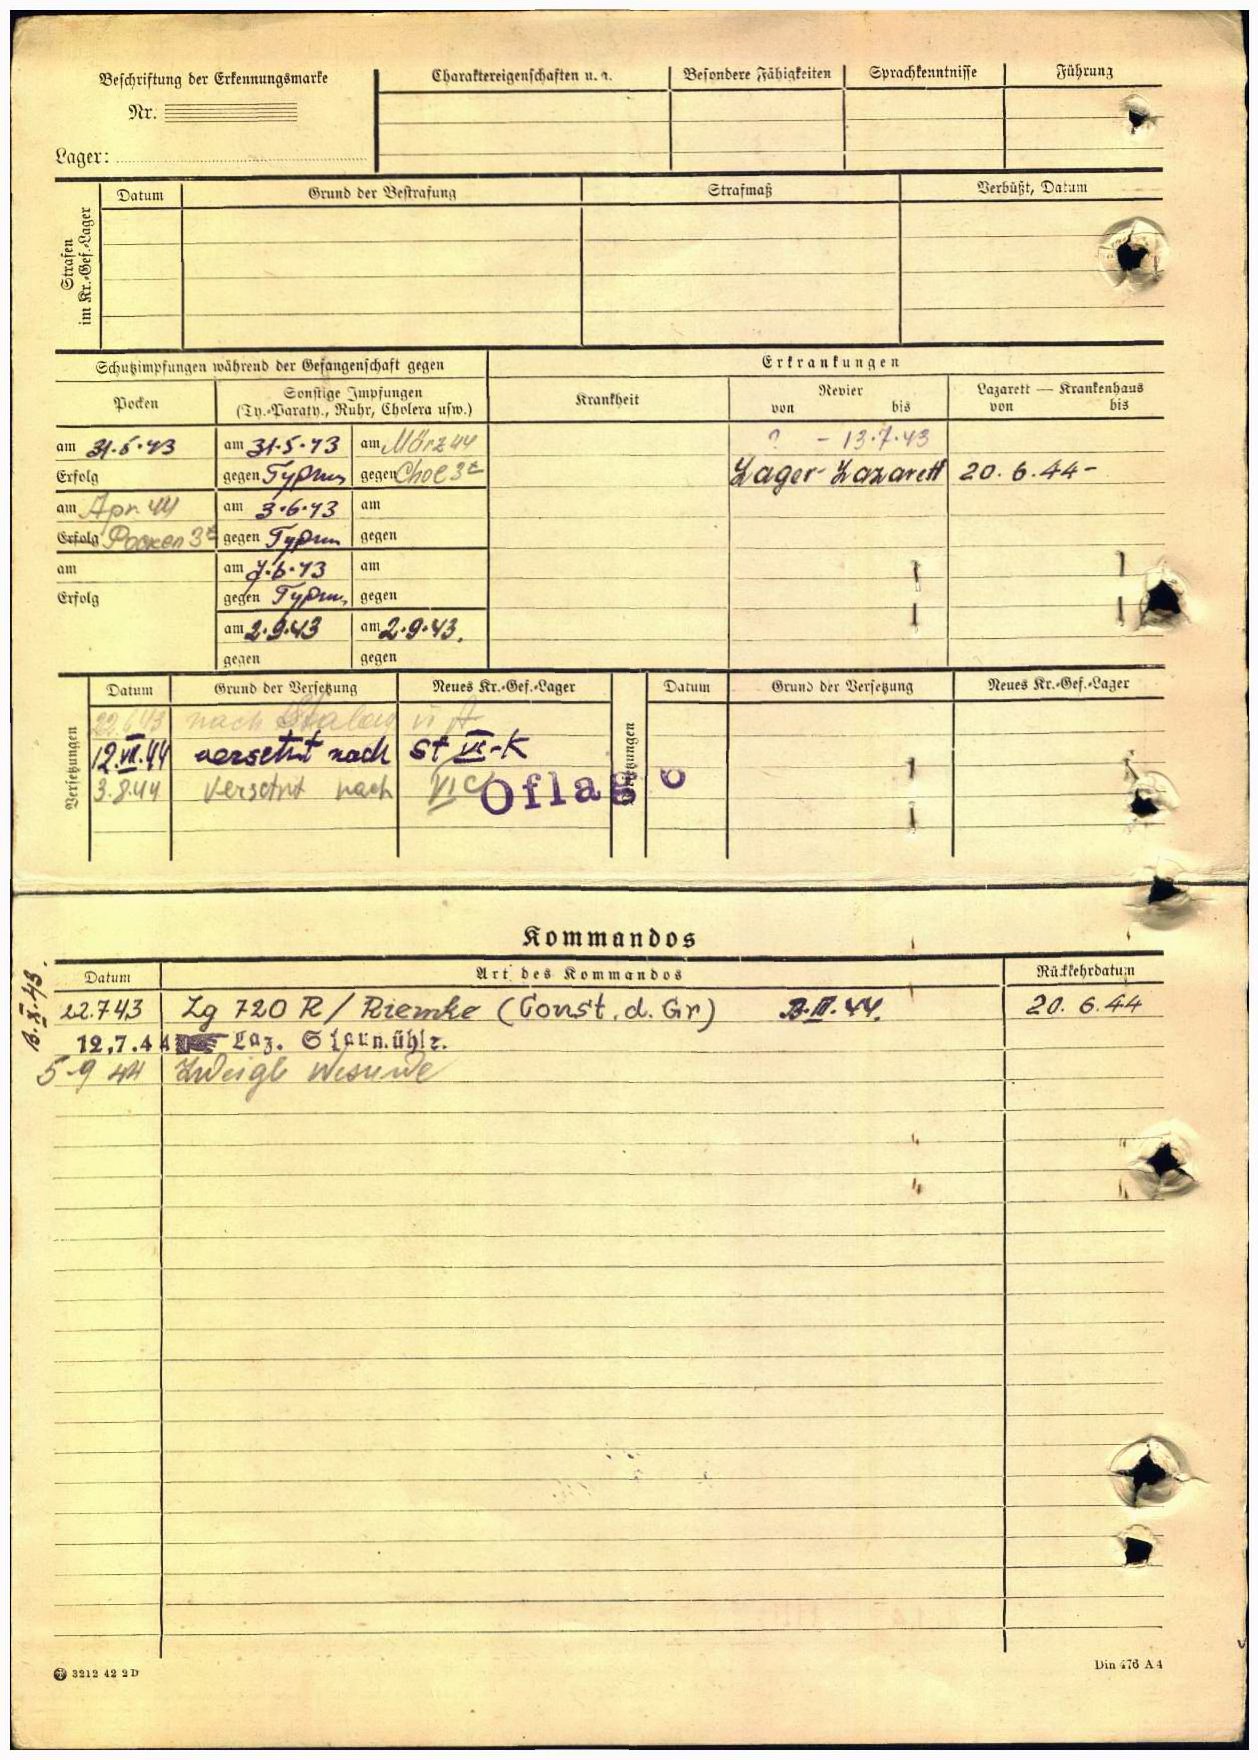 Beschriftung der Erkennungsmarke
Nr.
Lager:
Charaktereigenschaften u. a.
Besondere Fähigkeiten
Sprachkenntnisse
Führung
Strafen
im Kr.-Gef.-Lager
Datum
Grund der Bestrafung
Strafmaß
Verbüßt, Datum
Schutzimpfungen während der Gefangenschaft gegen
Erkrankungen
Pocken
Sonstige Impfungen
(Ty.-Paraty., Ruhr, Cholera usw.)
Krankheit
Revier
von bis
Lazarett — Krankenhaus
von bis
am 31.5.43 am 31.5.43 am März 44 ? - 13.7.43
Erfolg gegen Typhus gegen Chol 3x Lager-Lazarett 20.6.44-
am Apr. 44 am 3.6.43 am
Erfolg Pocken 3x gegen Typhus gegen
am am 7.6.43 am
Erfolg gegen Typhus gegen
am 2.9.43 am 2.9.43.
gegen gegen
Versetzungen
Datum Grund der Versetzung Neues Kr.-Gef.-Lager
Versetzungen
Datum Grund der Versetzung Neues Kr.-Gef.-Lager
22.6.43 nach Stalag VI A
12.VII.44 versetzt nach St VI-K
3.8.44 versetzt nach VI C
Oflag 6
Kommandos
Datum Art des Kommandos Rückkehrdatum
22.7.43 Zg 720 R / Riemke (Const. d. Gr) 20.6.44
12.7.44 Laz.
5.9.44 Zweigl
3212 42 2 D
Din 476 A 4